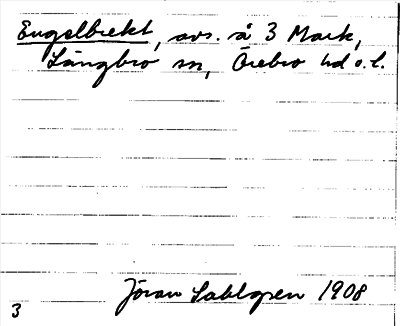 Engelbrekt, avs. å 3 Mark,
Längbro sn, Örebro hd o. l.
Jöran Sahlgren 1908
3